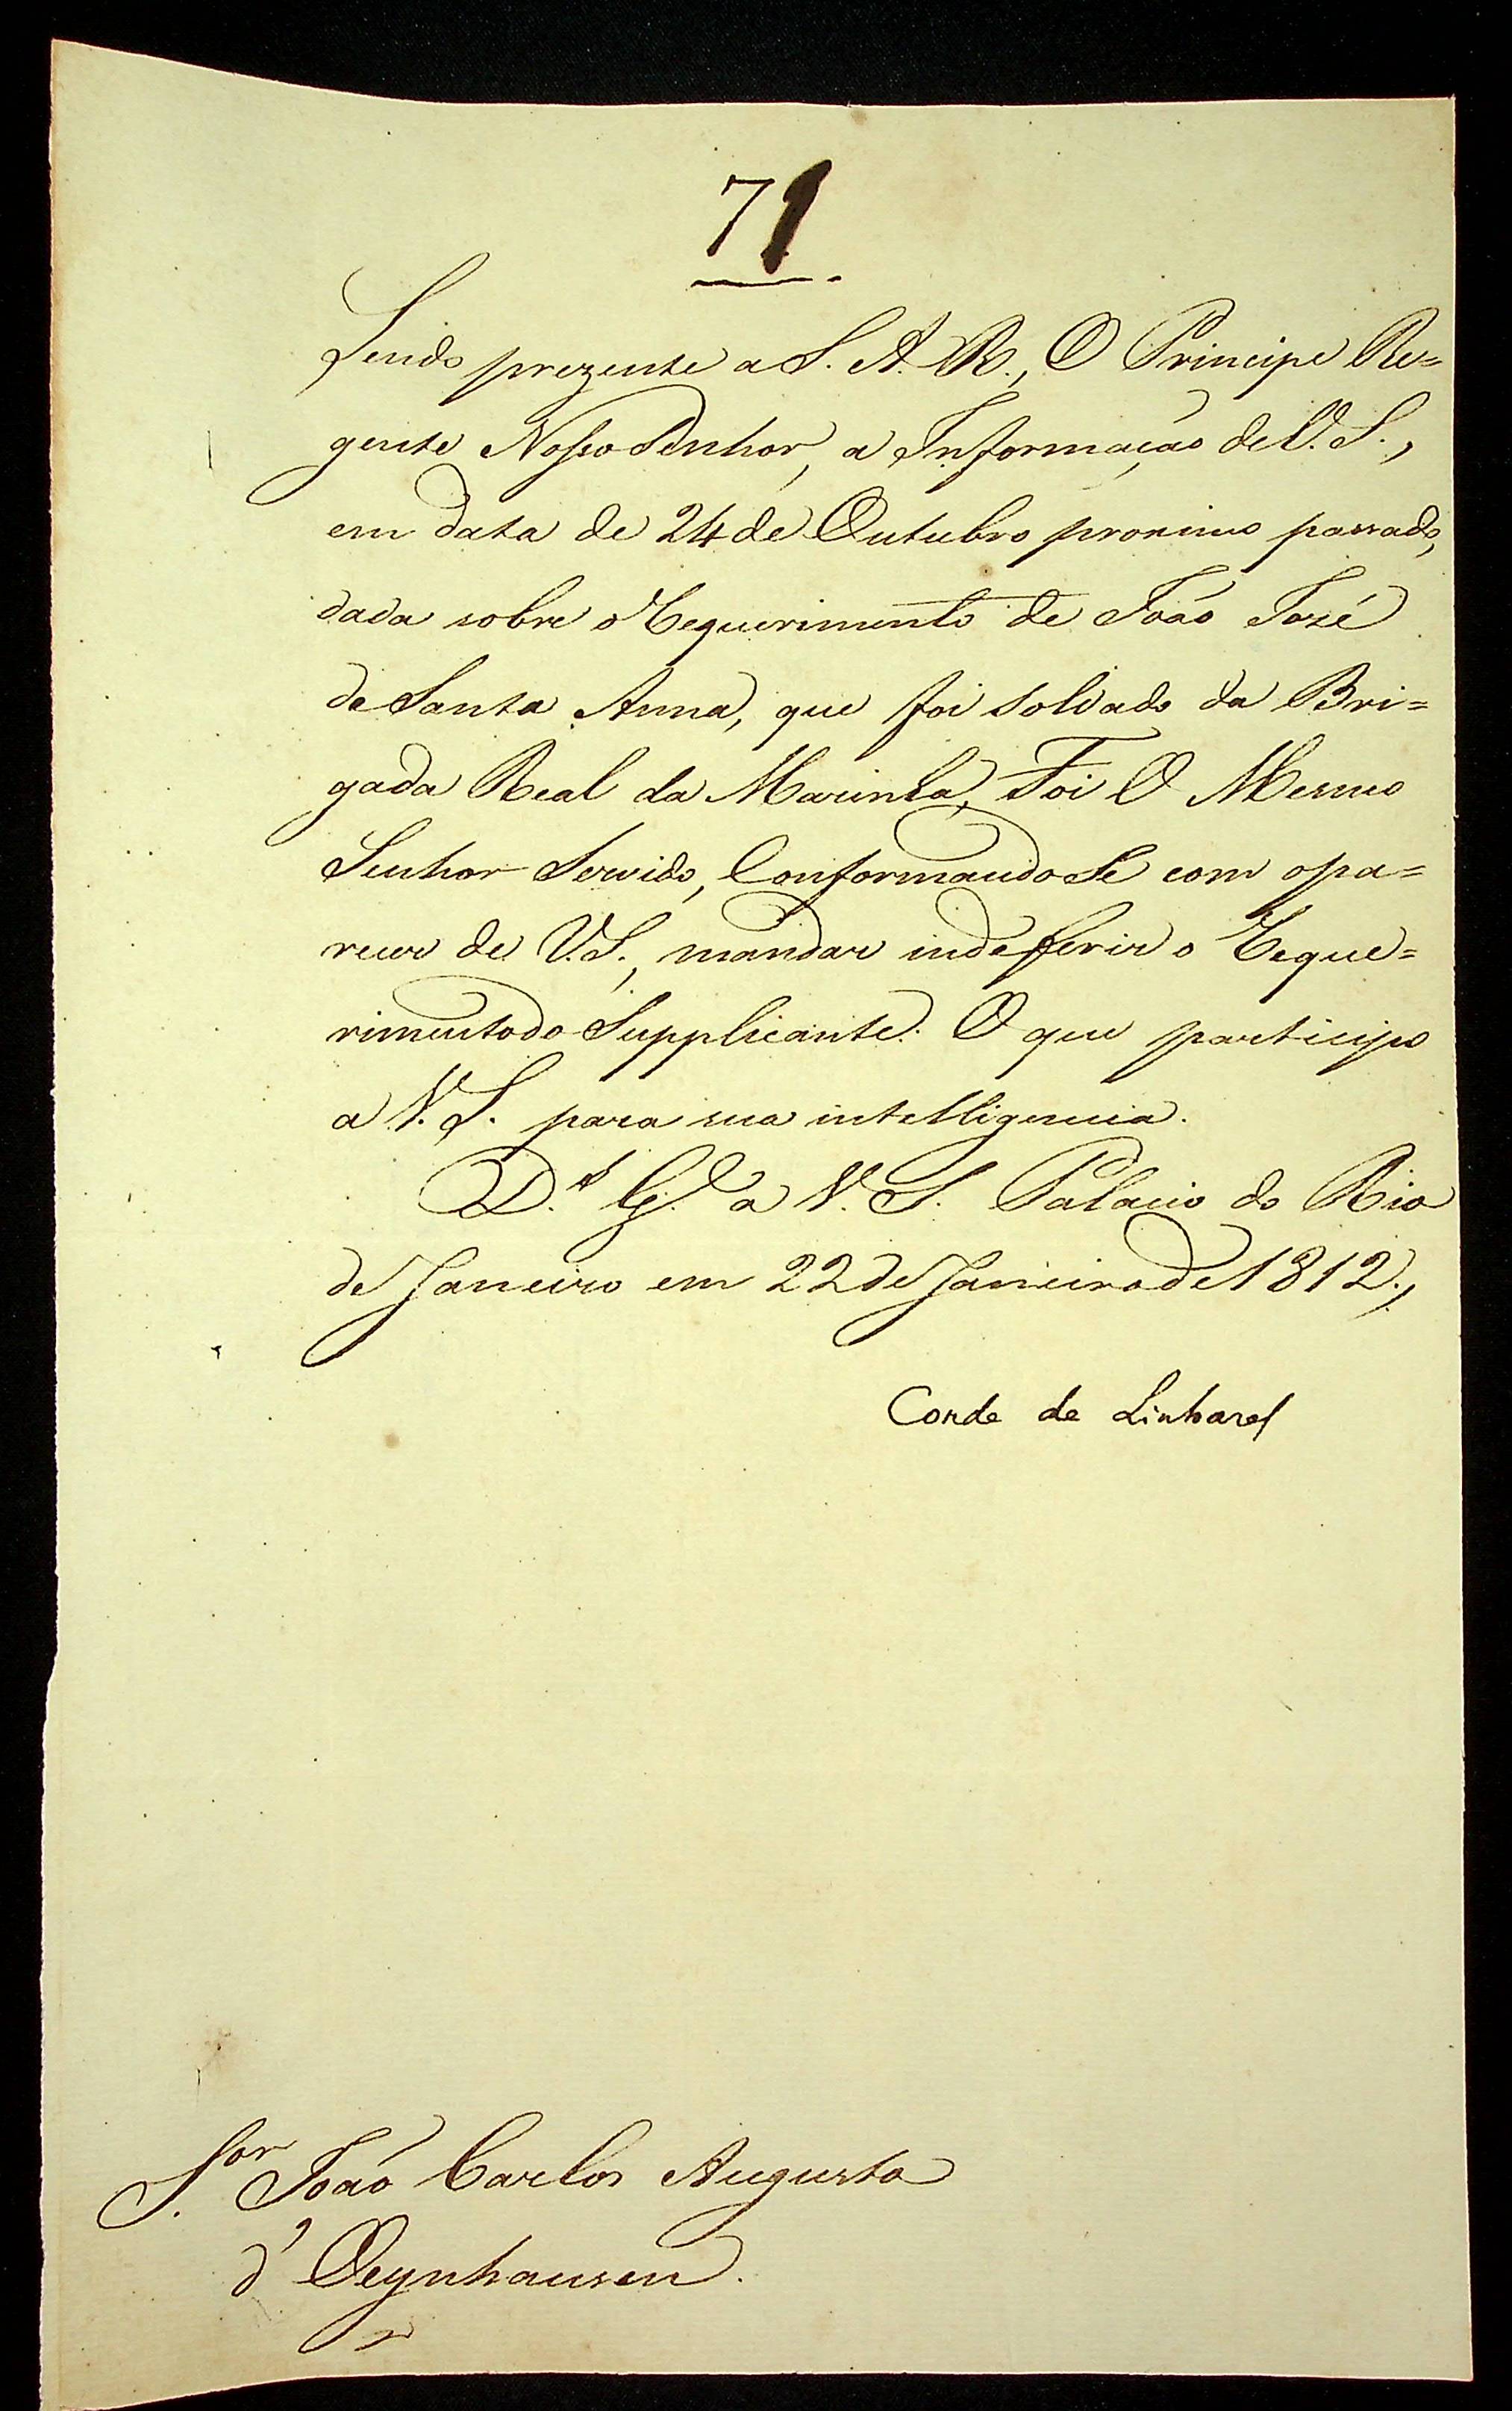 71
Sendo prezente a S. A. R., O Principe Re=
gente Nosso Senhor, a Informação de V. S.,
em data de 24 de Outubro proximo passado,
dada sobre o Requerimento de João José
de Santa Anna, que foi soldado da Bri=
gada Real da Marinha, Foi O Mesmo
Senhor Servido, Conformando Se com o pa=
recer de V. S., mandar indefferir o Reque=
rimento do Supplicante. O que participo
a V. S. para sua intelligencia.
D.s G.e a V. S. Palacio do Rio
de Janeiro em 22 de Janeiro de 1812.,
Conde de Linhares
S.or João Carlos Augusto
d'Oeynhausen.